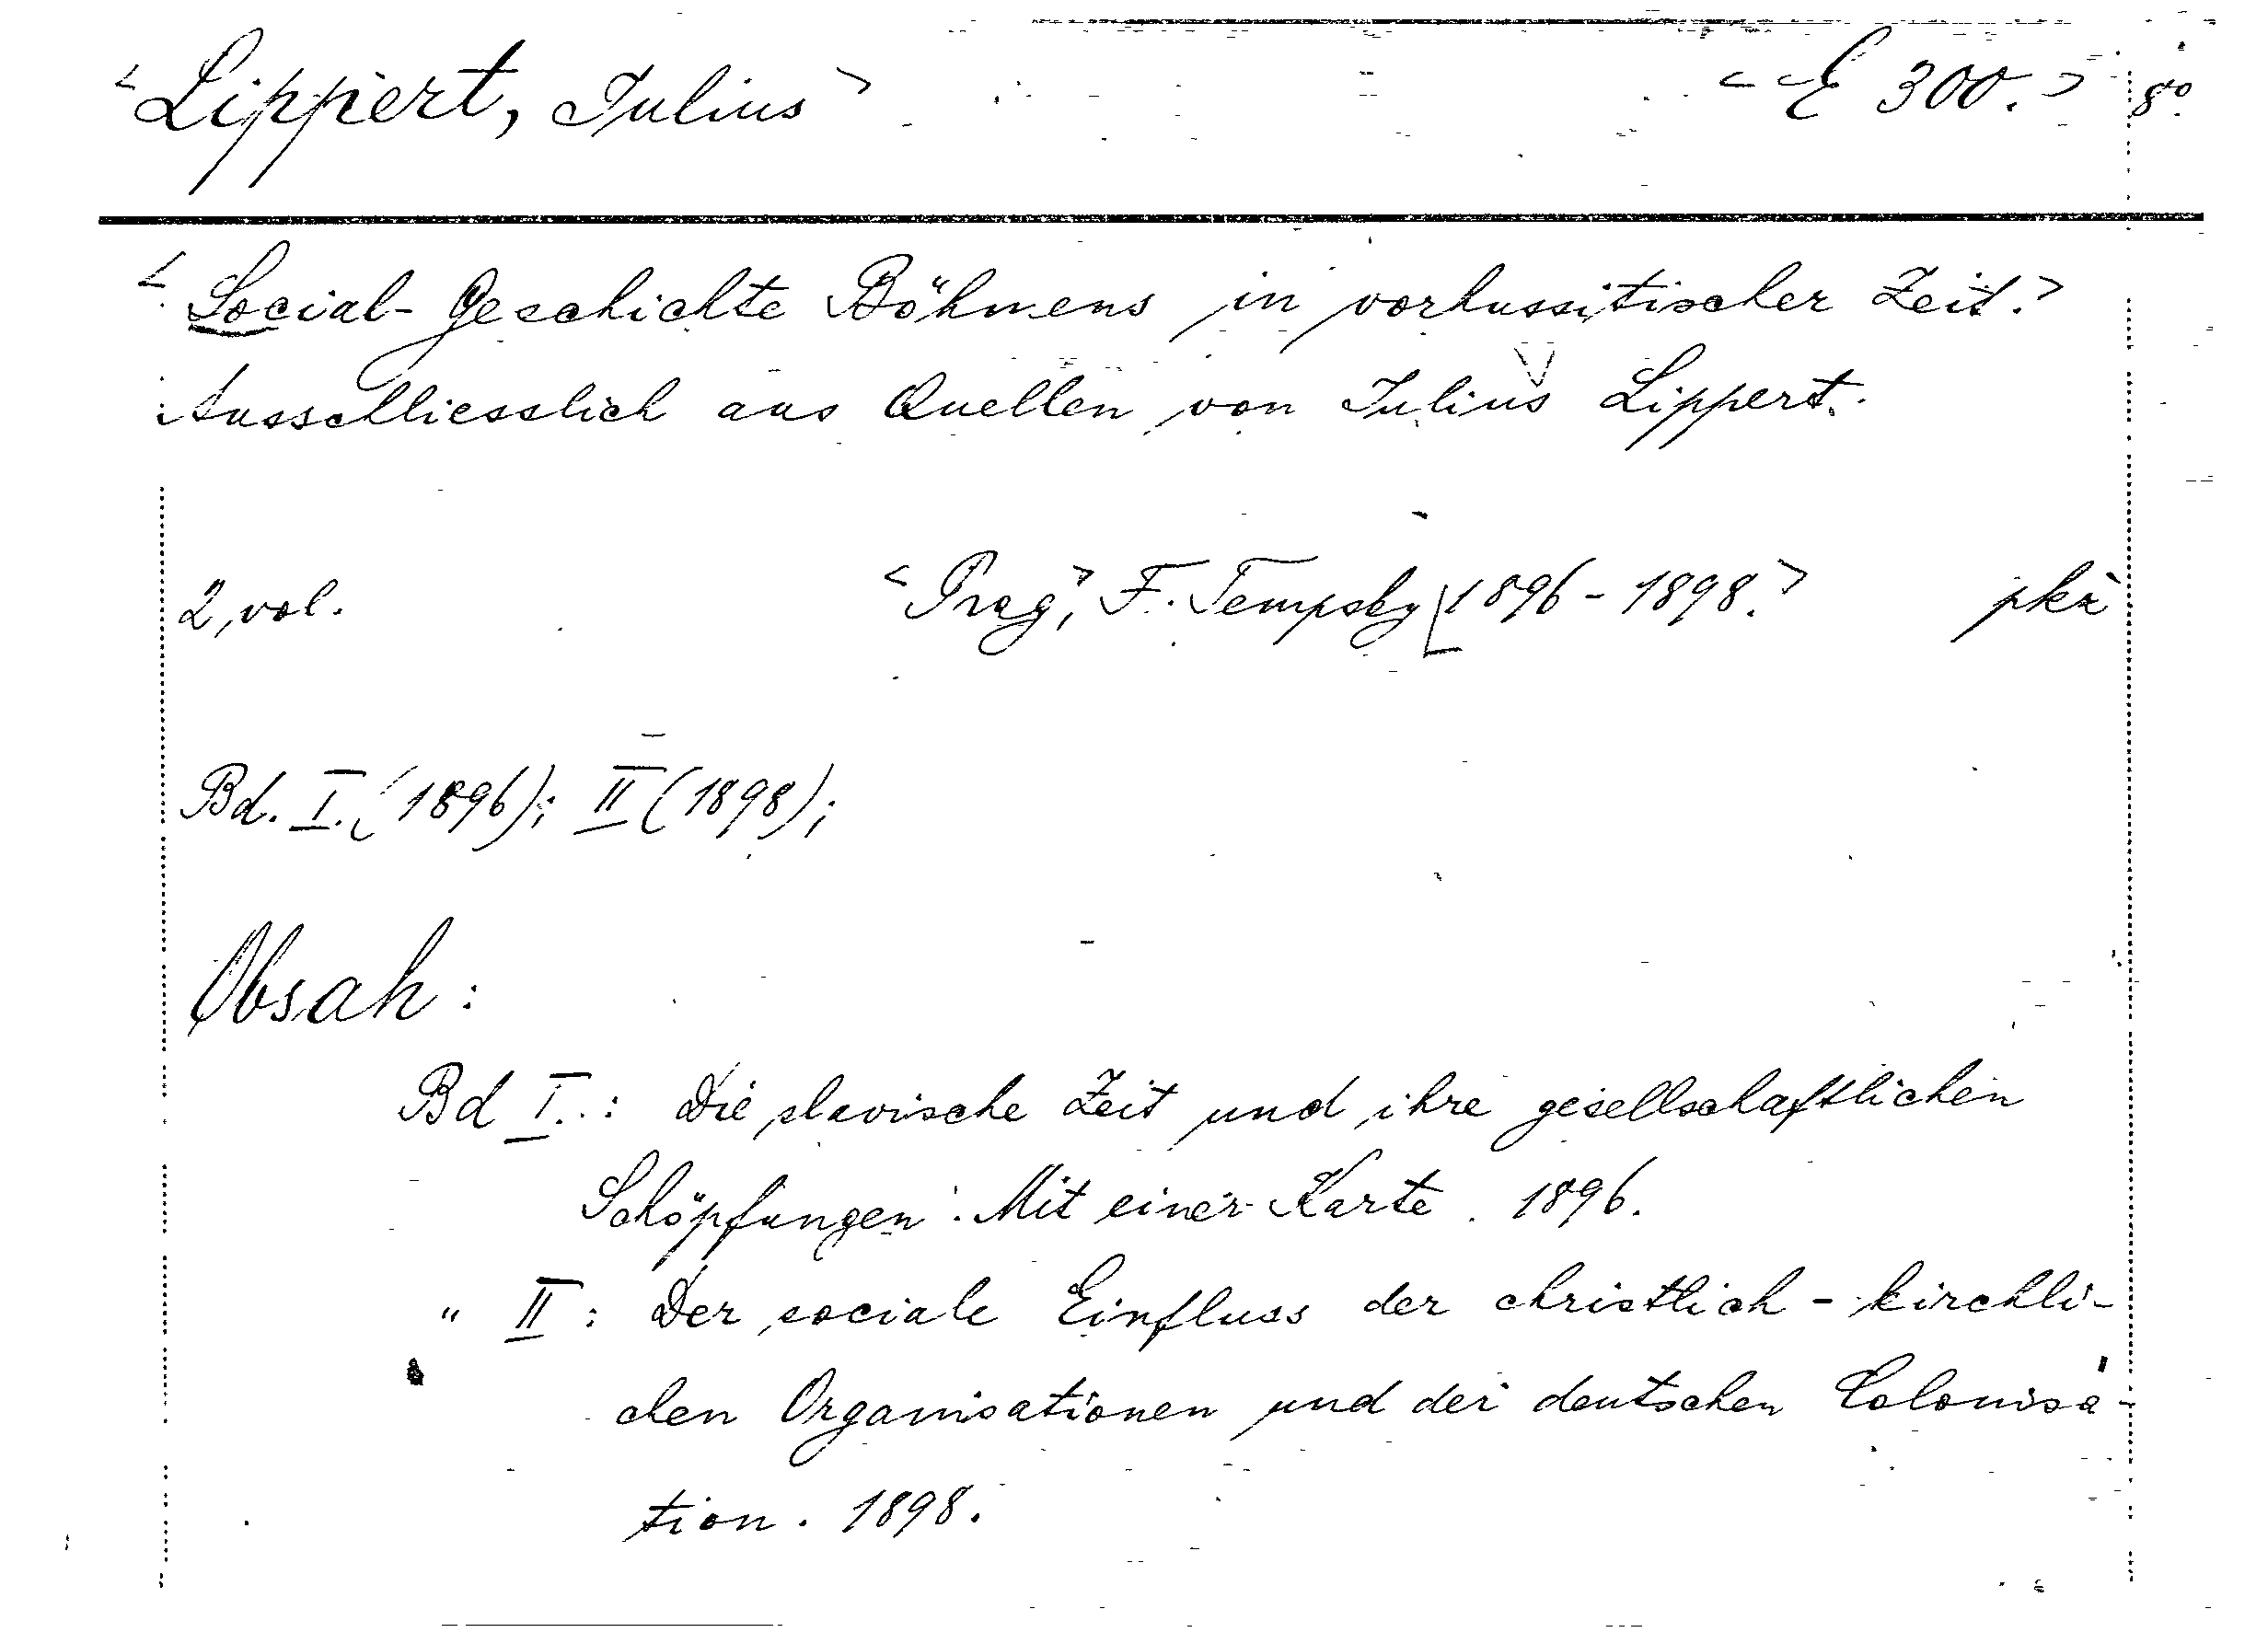 <Lippert, Julius> <E 300.> 8°
<Social-Geschichte Böhmens in vorhussitischer Zeit.>
Ausschliesslich aus Quellen von Julius Lippert.
2 vol. <Prag,> F. Tempsky [1896-1898.> pkž
Bd. I. (1896); II (1898);
Obsah:
Bd I.: Die slavische Zeit und ihre gesellschaftlichen
Schöpfungen. Mit einer Karte. 1896.
" II: Der sociale Einfluss der christlich-kirchli-
chen Organisationen und der deutschen Colonisa-
tion. 1898.